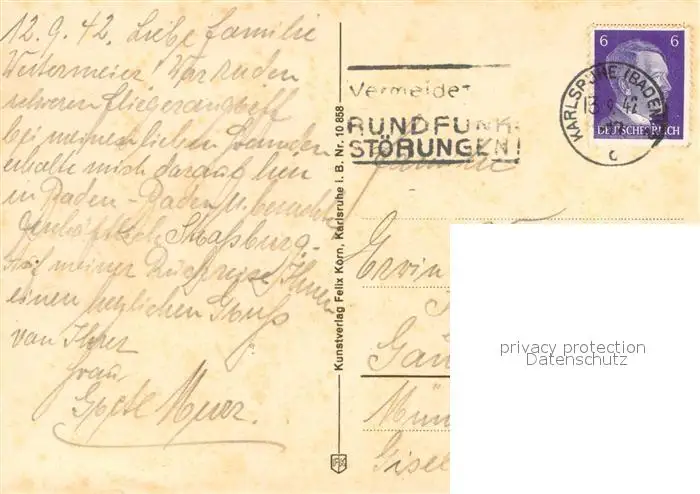 12. 9. 42. Liebe Familie
Westermeier! War zu den
schweren Fliegerangriff
bei meinen lieben
erholte mich darauf hin
in Baden-Baden u. besuchte
Straßburg.
Auf meiner Rückreise Ihnen
einen herzlichen Gruß
von Ihrer
Frau
Meier.
Kunstverlag Felix Korn, Karlsruhe i. B. Nr. 10 858
FK
Vermeidet
RUNDFUNK-
STÖRUNGEN!
KARLSRUHE (BADEN)
13. 9. 42
c
6 6
DEUTSCHES REICH
Familie
Erwin
Mün
Gisel
privacy protection
Datenschutz